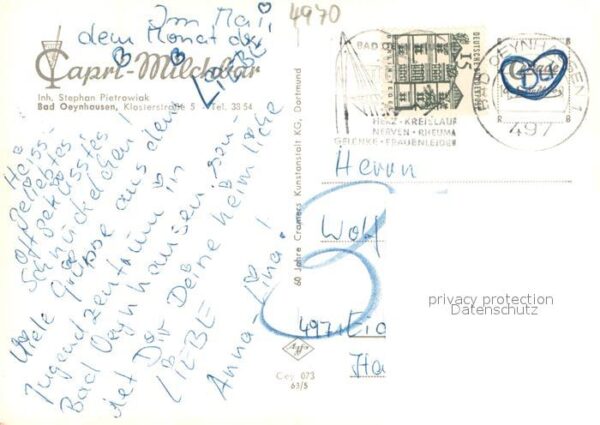 Im Mai,
dem Monat der
LIEBE
Capri-Milchbar
Inh. Stephan Pietrowiak
Bad Oeynhausen, Klosterstraße 5 - Tel. 33 54
Heiss-
geliebtes
oftgeküsstes
Schnuckelchen!
Viele Grüsse aus dem
Jugendzentrum in
Bad Oeynhausen sen-
det Dir Deine heimliche
LIEBE
Anna-Lina!
60 Jahre Cramers Kunstanstalt KG, Dortmund
Cey. 073
63/5
4970
BAD O
DEUTSCHE
15
HERZ · KREISLAUF
NERVEN · RHEUMA
GELENKE · FRAUENLEIDEN
BAD OEYNHAUSEN 1
497
Du
Herrn
Wolf
497
privacy protection
Datenschutz